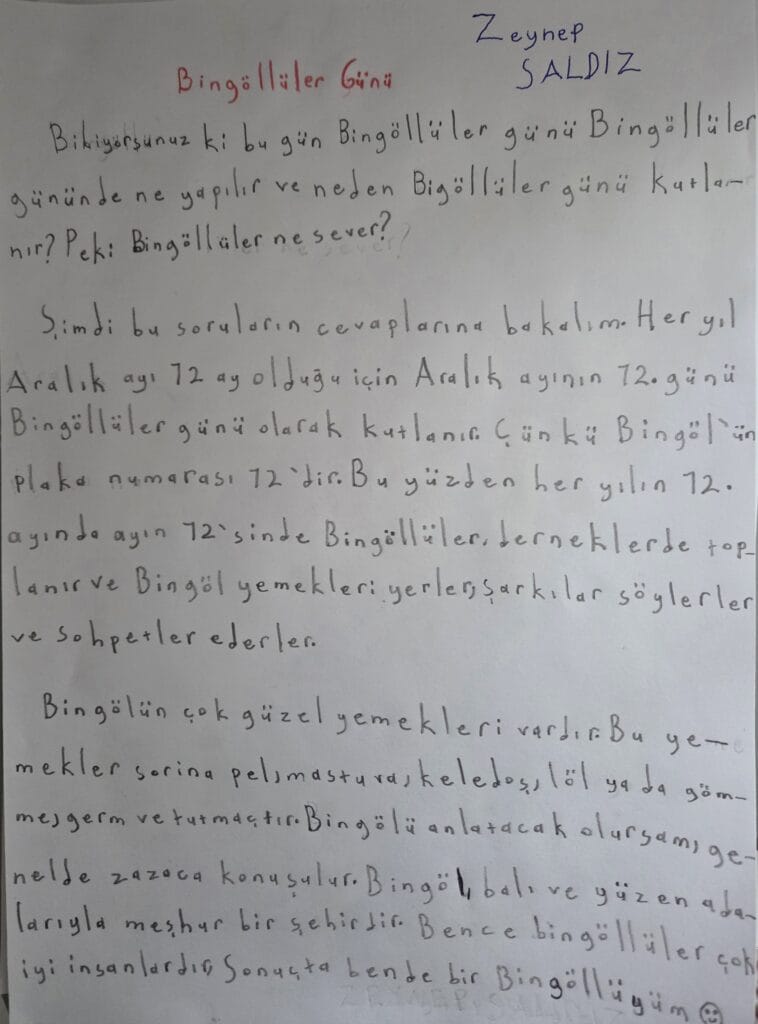 Zeynep
SALDIZ
Bingöllüler Günü
Biliyorsunuz ki bu gün Bingöllüler günü Bingöllüler
gününde ne yapılır ve neden Bigöllüler günü kutla-
nır? Peki Bingöllüler ne sever?
Şimdi bu soruların cevaplarına bakalım. Her yıl
Aralık ayı 12 ay olduğu için Aralık ayının 12. günü
Bingöllüler günü olarak kutlanır. Çünkü Bingöl'ün
plaka numarası 12'dir. Bu yüzden her yılın 12.
ayında ayın 12'sinde Bingöllüler, derneklerde top-
lanır ve Bingöl yemekleri yerler, şarkılar söylerler
ve sohpetler ederler.
Bingölün çok güzel yemekleri vardır. Bu ye-
mekler sorina pel, mastuva, keledoş, löl ya da göm-
me, germ ve tutmaçtır. Bingölü anlatacak olursam, ge-
nelde zazaca konuşulur. Bingöl, balı ve yüzen ada-
larıyla meşhur bir şehirdir. Bence bingöllüler çok
iyi insanlardır, Sonuçta bende bir Bingöllüyüm ☺